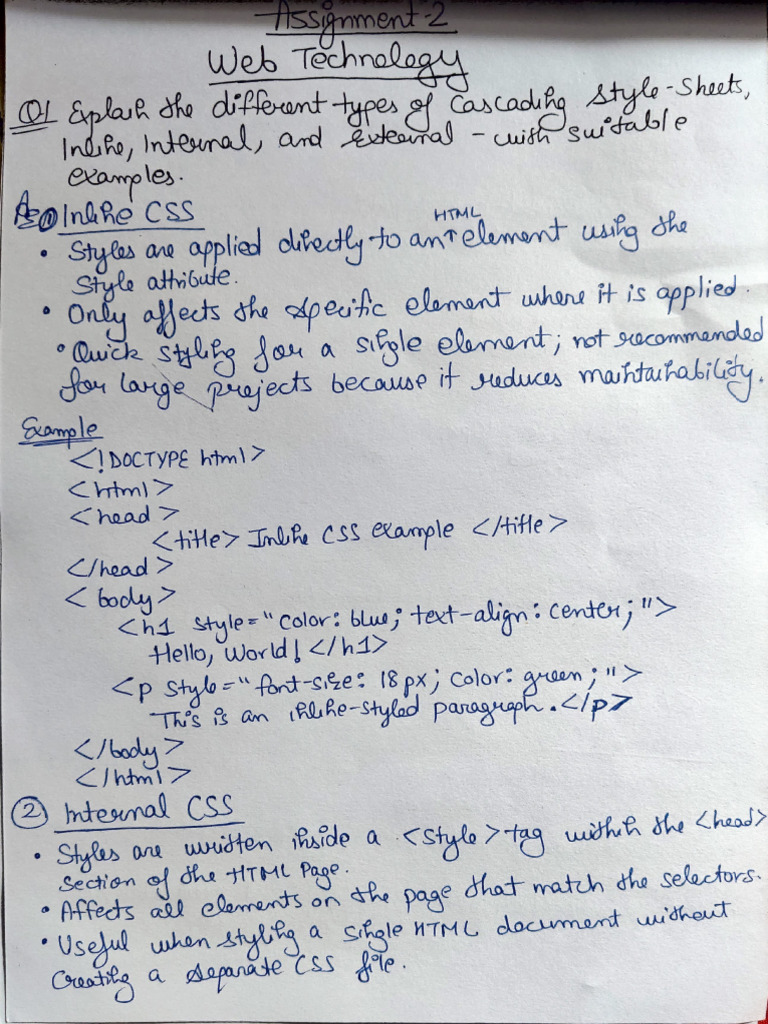 Assignment-2
Web Technology
Q1 Explain the different types of Cascading Style-Sheets,
Inline, Internal, and External - with suitable
examples.
Ans ① Inline CSS
• Styles are applied directly to an HTML element using the
Style attribute.
• Only affects the specific element where it is applied.
• Quick styling for a single element; not recommended
for large projects because it reduces maintainability.
Example
<!DOCTYPE html>
<html>
<head>
<title> Inline CSS example </title>
</head>
<body>
<h1 style="color: blue; text-align: center;">
Hello, World! </h1>
<p style="font-size: 18px; color: green;">
This is an inline-styled paragraph.</p>
</body>
</html>
② Internal CSS
• Styles are written inside a <style> tag within the <head>
section of the HTML Page.
• Affects all elements on the page that match the selectors.
• Useful when styling a single HTML document without
Creating a separate CSS file.